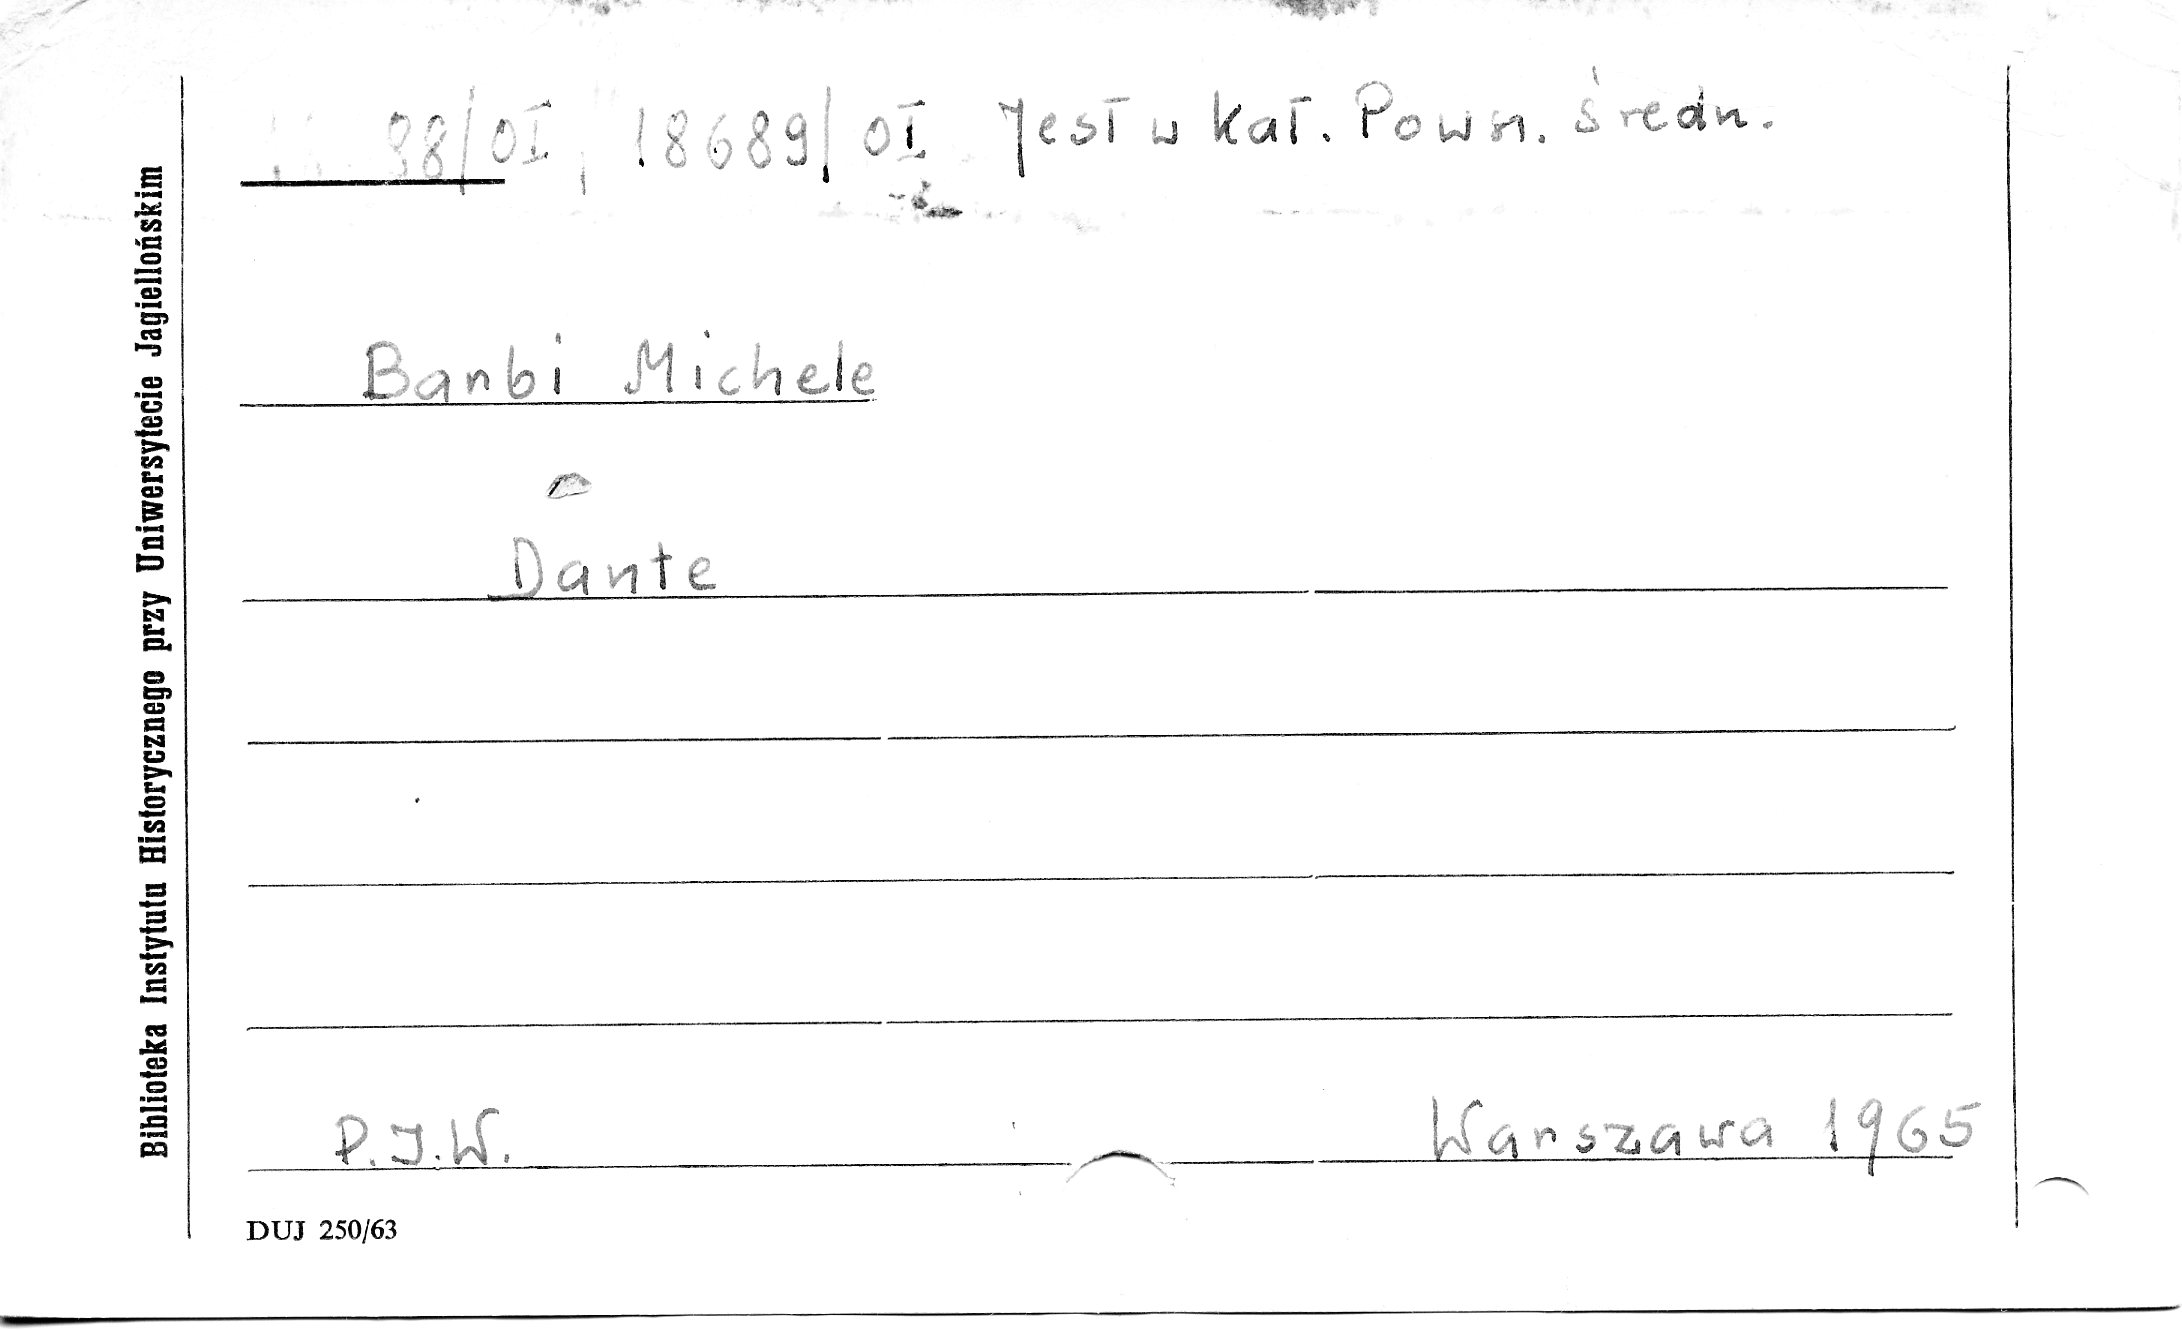 98/OI, 18689/OI Jest w kat. Powsz. średn.
Barbi Michele
Dante
P.I.W. Warszawa 1965
DUJ 250/63
Biblioteka Instytutu Historycznego przy Uniwersytecie Jagiellońskim